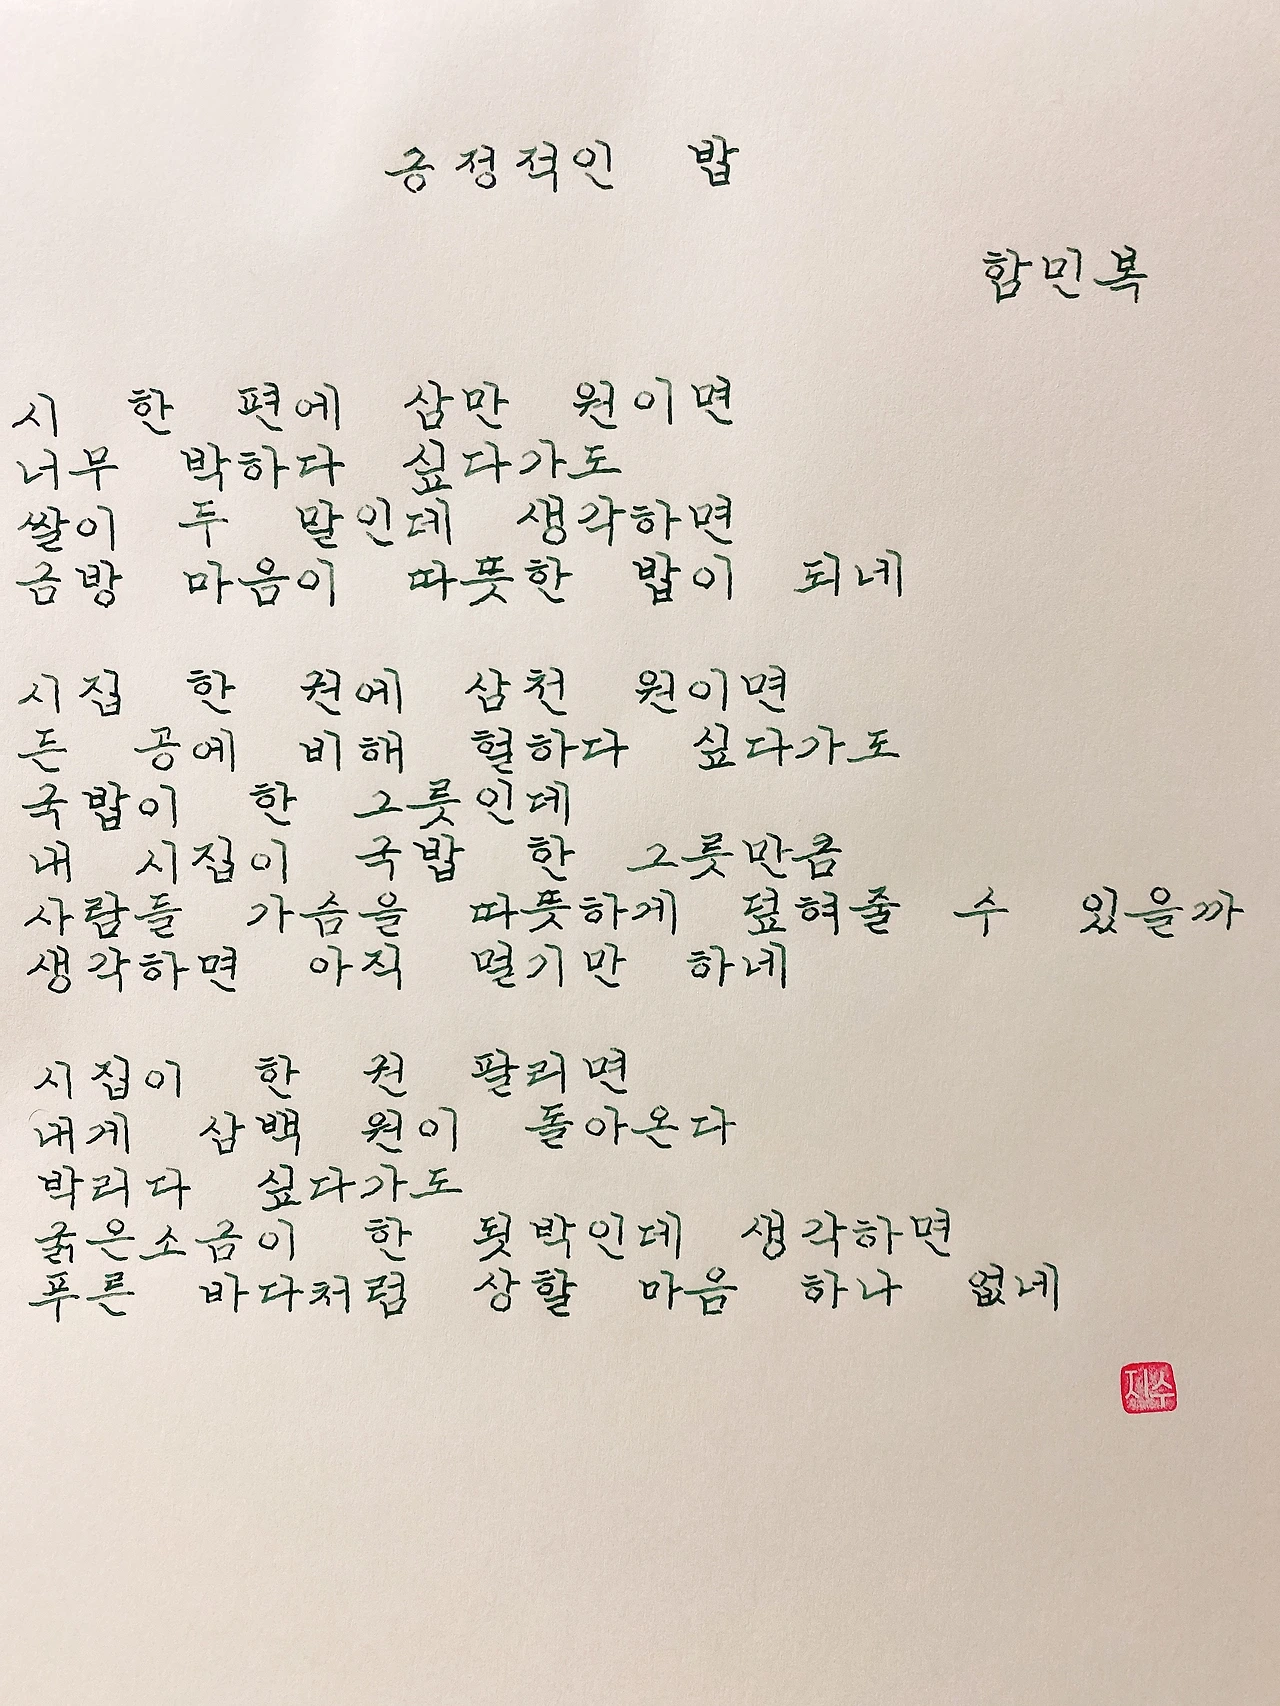 긍정적인 밥
함민복
시 한 편에 삼만 원이면
너무 박하다 싶다가도
쌀이 두 말인데 생각하면
금방 마음이 따뜻한 밥이 되네
시집 한 권에 삼천 원이면
든 공에 비해 헐하다 싶다가도
국밥이 한 그릇인데
내 시집이 국밥 한 그릇만큼
사람들 가슴을 따뜻하게 덮혀줄 수 있을까
생각하면 아직 멀기만 하네
시집이 한 권 팔리면
내게 삼백 원이 돌아온다
박리다 싶다가도
굵은소금이 한 됫박인데 생각하면
푸른 바다처럼 상할 마음 하나 없네
지수